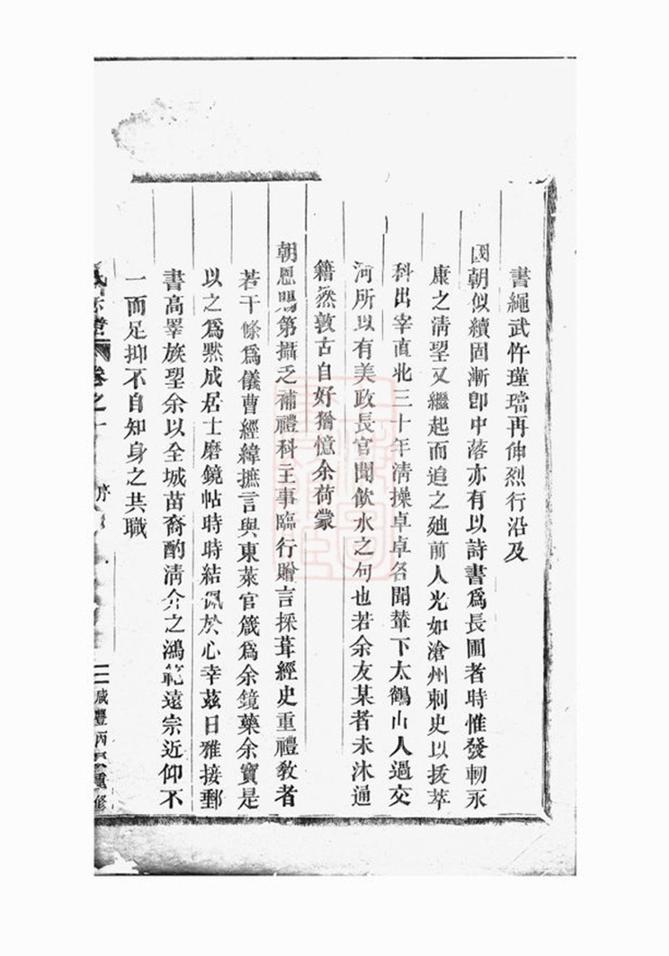 書繩武忤瑾璫再伸烈行沿及
國朝似續固漸卽中落亦有以詩書爲長圃者時惟發軔永
康之淸望又繼起而追之廸前人光如滄州刺史以拔萃
科出宰直北三十年淸操卓卓名聞輦下太鶴山人過交
河所以有美政長官聞飮水之句也若余友某者未沐通
籍然敦古自好猶憶余荷蒙
朝恩賜第攝乏補禮科主事臨行贈言採葺經史重禮敎者
若干條爲儀曹經緯摭言與東萊官箴爲余鏡藥余寶是
以之爲黙成居士磨鏡帖時時結佩於心幸茲日雅接郵
書高睪族望余以全城苗裔酌淸介之鴻範遠宗近仰不
一而足抑不自知身之共職
卷之十 序 咸豐丙辰重修